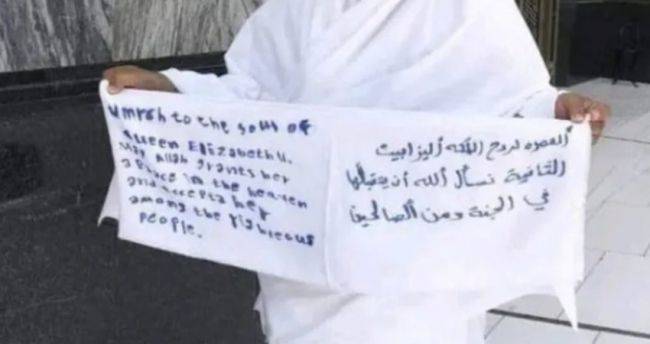 Umrah to the soul of
Queen Elizabeth II.
May Allah grants her
a place in the heaven
and accepta her
among the righteous
people.
العمره لروح الملكه اليزابيث
الثانية نسأل الله أن يتقبلها
في الجنة ومن الصالحين